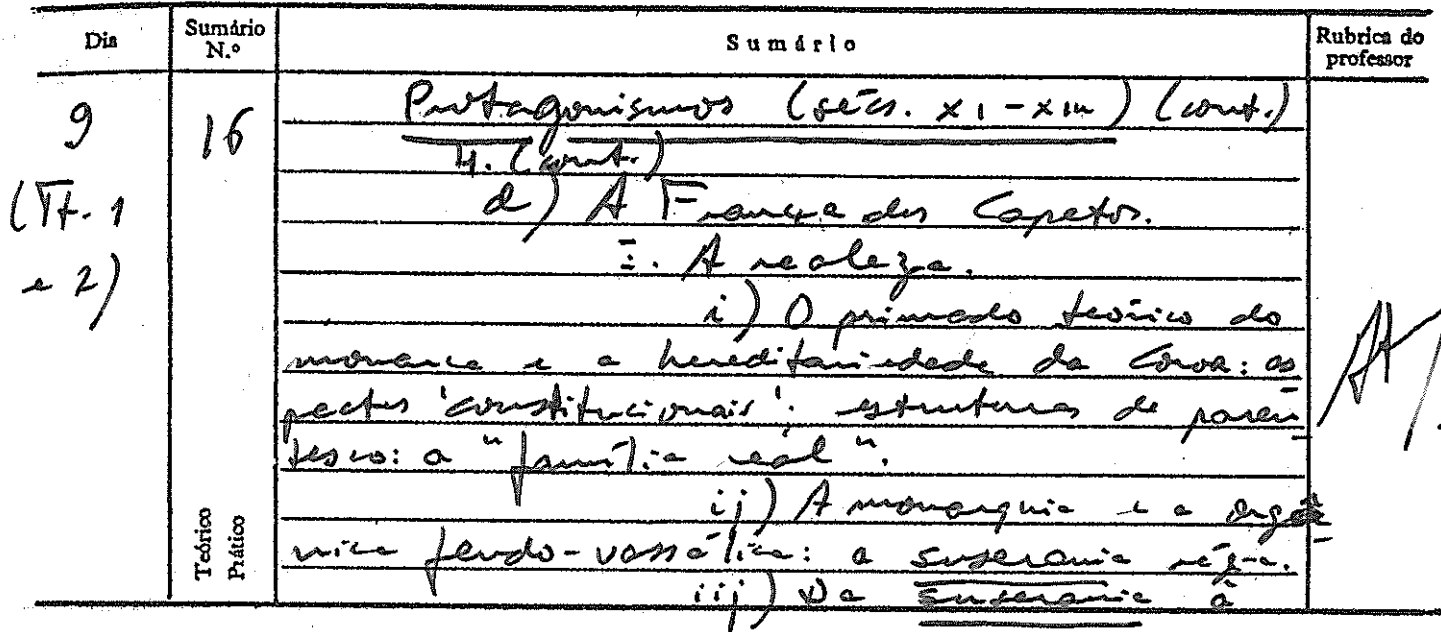 Dia
Sumário N.º
Sumário
Rubrica do professor
9
(Tt. 1
e 2)
16
Teórico
Prático
Protagonismos (sécs. XI-XIII) (cont.)
4. (cont.)
d) A França dos Capetos.
I. A realeza.
i) O primado teórico do
monarca e a hereditariedade da Coroa: as
pectos 'constitucionais'; estruturas de paren
tesco: a "família real".
ij) A monarquia e a orgâ
nica feudo-vassálica: a suserania régia.
iij) Da suserania à